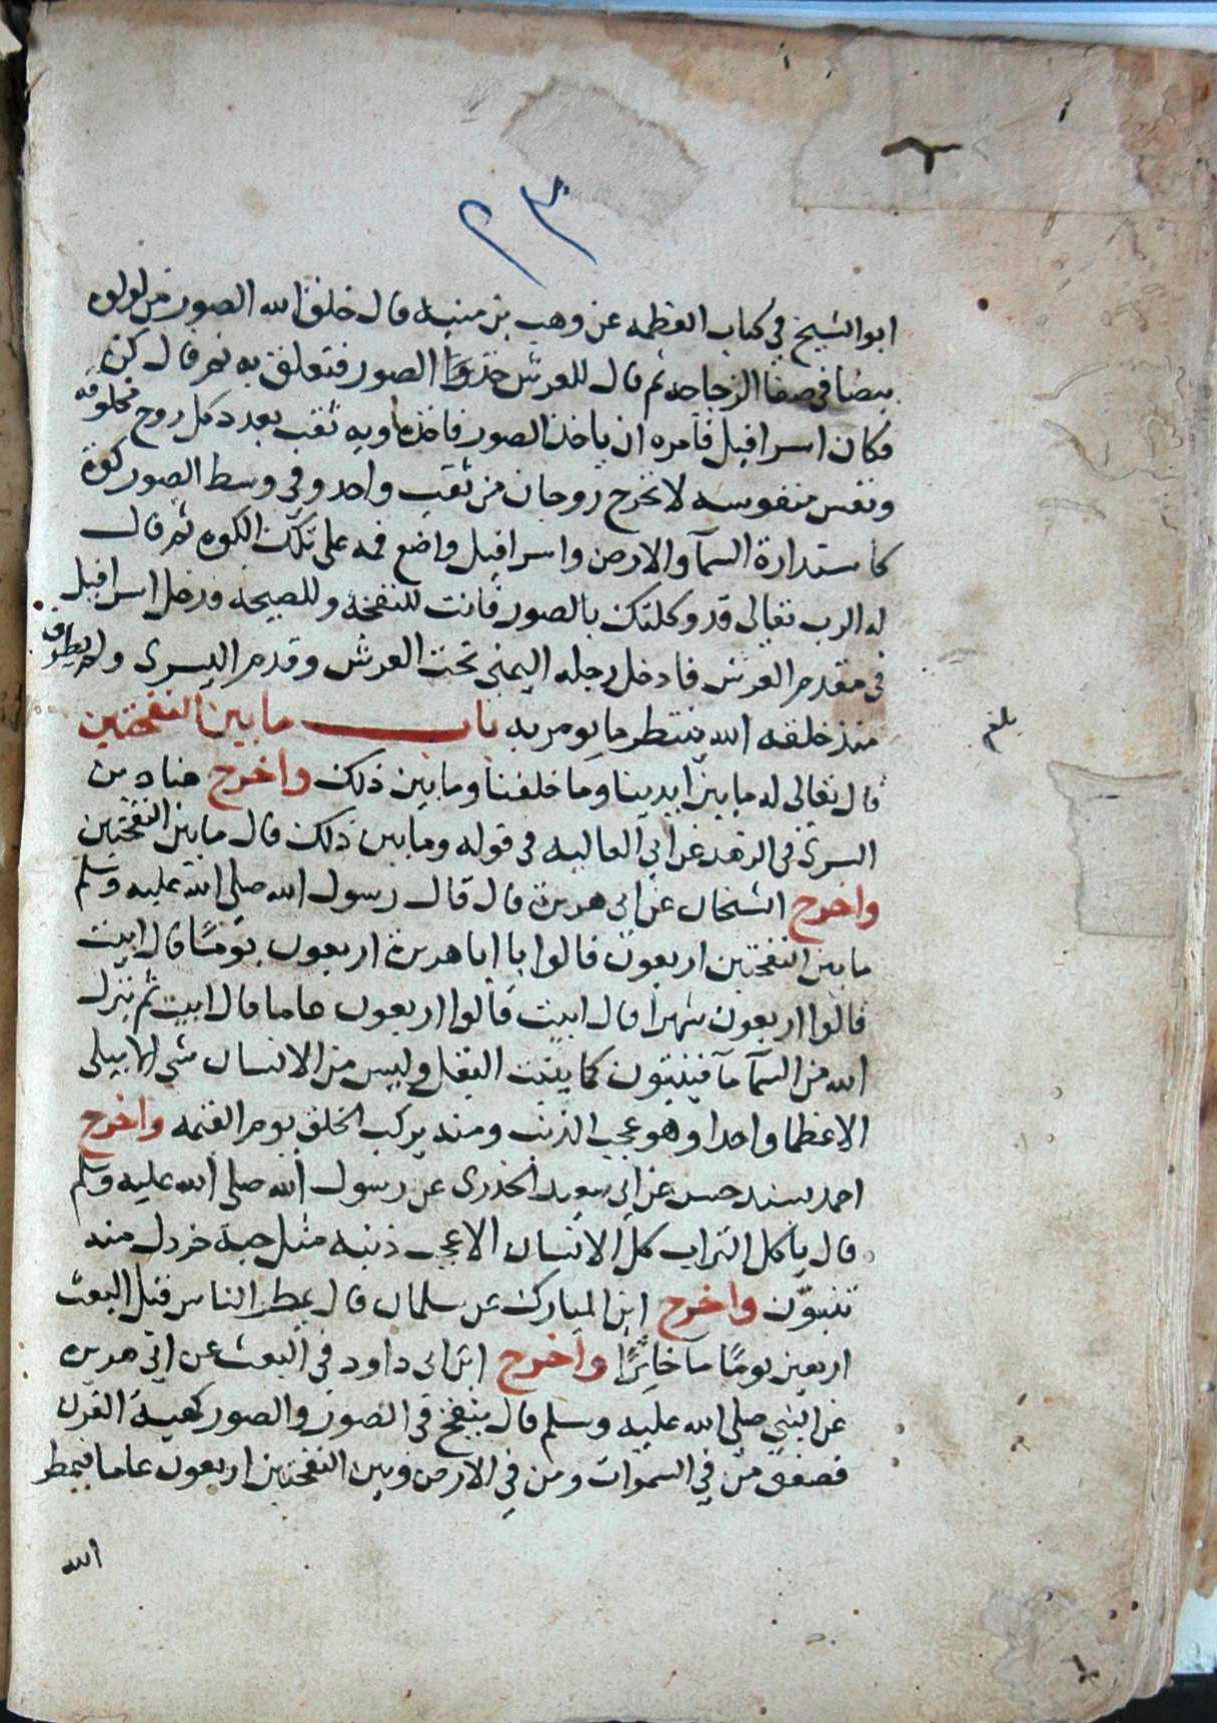 ٢٣
ابو الشيخ في كتاب العظمه عن وهب بن منبه قال خلق الله الصور من لولوه
بيضا في صفا الزجاجه ثم قال للعرش خذ الصور فتعلق به ثم قال كن
فكان اسرافيل فامره ان ياخذ الصور فاخذه وبه ثقب بعدد كل روح مخلوقه
ونفس منفوسه لا تخرج روحان من ثقب واحد وفي وسط الصور كوة
كاستدارة السمآ والارض واسرافيل واضع فمه على تلك الكوه ثم قال
له الرب تعالى قد وكلتك بالصور فانت للنفخة وللصيحه فدخل اسرافيل
في مقدم العرش فادخل رجله اليمنى تحت العرش وقدم اليسرى ولم يطرف
منذ خلقه الله ينتظر ما يومر به باب ما بين النفختين
بلغ
قال تعالى له ما بين ايدينا وما خلفنا وما بين ذلك واخرج هناد بن
السرى في الزهد عن ابي العاليه في قوله وما بين ذلك قال ما بين النفختين
واخرج الشيخان عن ابى هريرة قال قال رسول الله صلى الله عليه وسلم
ما بين النفختين اربعون قالوا يا ابا هريرة اربعون يومًا قال ابيت
قالوا اربعون شهرا قال ابيت قالوا اربعون عاما قال ابيت ثم ينزل
الله من السمآ مآ فينبتون كما ينبت البقل وليس من الانسان شى الا يبلى
الا عظما واحدا وهو عجب الذنب ومنه يركب الخلق يوم القيمه واخرج
احمد بسند حسن عن ابى سعيد الخدرى عن رسول الله صلى الله عليه وسلم
قال ياكل التراب كل الانسان الا عجب ذنبه مثل حبة خردل منه
تنبتون واخرج ابن المبارك عن سلمان قال يمطر الناس قبل البعث
اربعين يومًا مآ خاثرًا واخرج ابن ابى داود في البعث عن ابي هريره
عن النبي صلى الله عليه وسلم قال ينفخ في الصور والصور كهيئة القرن
فصعق من في السموات ومن في الارض وبين النفختين اربعون عاما فيمطر
الله